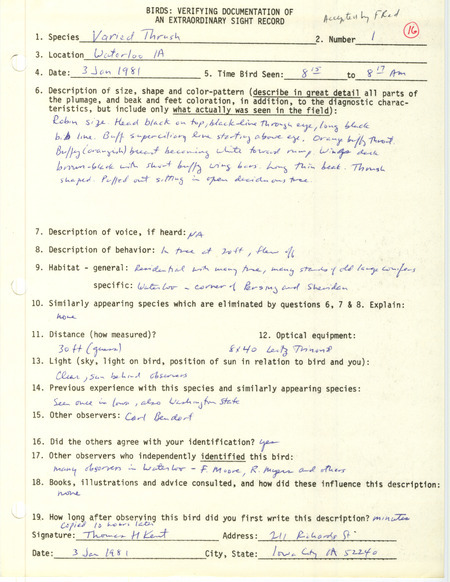 BIRDS: VERIFYING DOCUMENTATION OF
AN EXTRAORDINARY SIGHT RECORD
Accepted by FRed
16
1. Species Varied Thrush 2. Number 1
3. Location Waterloo IA
4. Date: 3 Jan 1981 5. Time Bird Seen: 8 15 to 8 17 AM
6. Description of size, shape and color-pattern (describe in great detail all parts of
the plumage, and beak and feet coloration, in addition, to the diagnostic charac-
teristics, but include only what actually was seen in the field):
Robin size. Head black on top, black line through eye, long black
bib line. Buff superciliary line starting above eye. Orangy buffy throat.
Buffy (orangish) breast becoming white toward rump. Wings dark
brown-black with short buffy wing bars. Long thin beak. Thrush
shaped. Puffed out sitting in open deciduous tree.
7. Description of voice, if heard: NA
8. Description of behavior: In tree at 20 ft, flew off
9. Habitat - general: Residential with many trees, many stands of old large conifers
specific: Waterloo - corner of Pershing and Sheridan
10. Similarly appearing species which are eliminated by questions 6, 7 & 8. Explain:
none
11. Distance (how measured)? 12. Optical equipment:
30 ft (guess) 8x40 Leitz Trinovid
13. Light (sky, light on bird, position of sun in relation to bird and you):
Clear, sun behind observers
14. Previous experience with this species and similarly appearing species:
Seen once in Iowa, also Washington State
15. Other observers: Carl Bendorf
16. Did the others agree with your identification? yes
17. Other observers who independently identified this bird:
many observers in Waterloo - F. Moore, R. Myers and others
18. Books, illustrations and advice consulted, and how did these influence this description:
none
19. How long after observing this bird did you first write this description? minutes
copied 12 hours later
Signature: Thomas H Kent Address: 211 Richards St
Date: 3 Jan 1981 City, State: Iowa City IA 52240